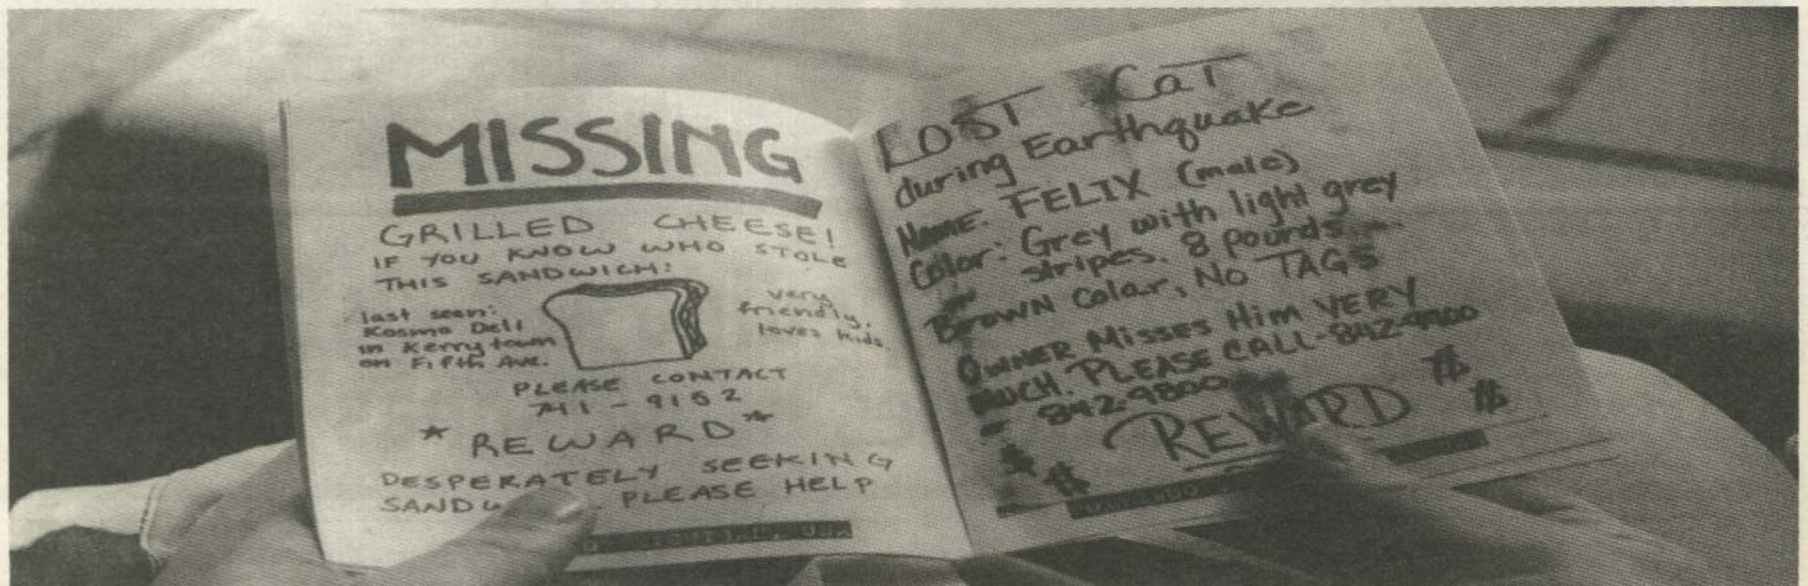 MISSING
GRILLED CHEESE!
IF YOU KNOW WHO STOLE
THIS SANDWICH:
last seen:
Kosmo Deli
in Kerrytown
on Fifth Ave.
very
friendly.
loves kids.
PLEASE CONTACT
741-9182
* REWARD *
DESPERATELY SEEKING
PLEASE HELP
LOST Cat
during Earthquake
Name: FELIX (male)
Color: Grey with light grey
stripes. 8 pounds
Brown Colar, No TAGS
OWNER Misses Him VERY
MUCH. PLEASE CALL-842-9900
842-9800
$
REWARD $
$
$